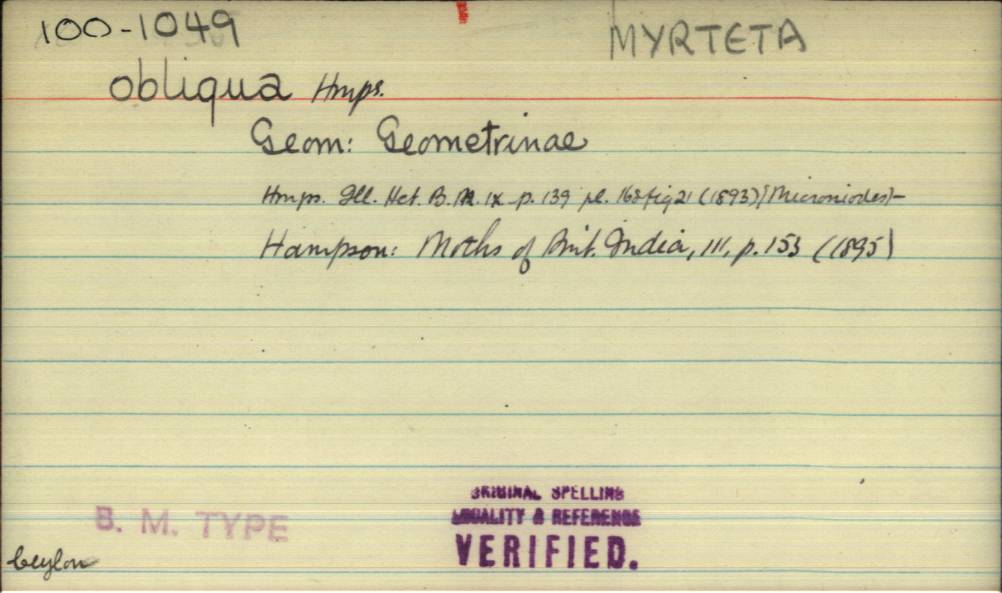 100-1049
MYRTETA
obliqua Hmps.
Geom: Geometrinae
Hmps. Ill. Het. B.M. ix p. 139 pl. 168 fig 21 (1893) [Microniodes]-
Hampson: Moths of Brit. India, III, p. 153 (1895)
ORIGINAL SPELLING
LOCALITY & REFERENCE
B. M. TYPE
VERIFIED.
Ceylon